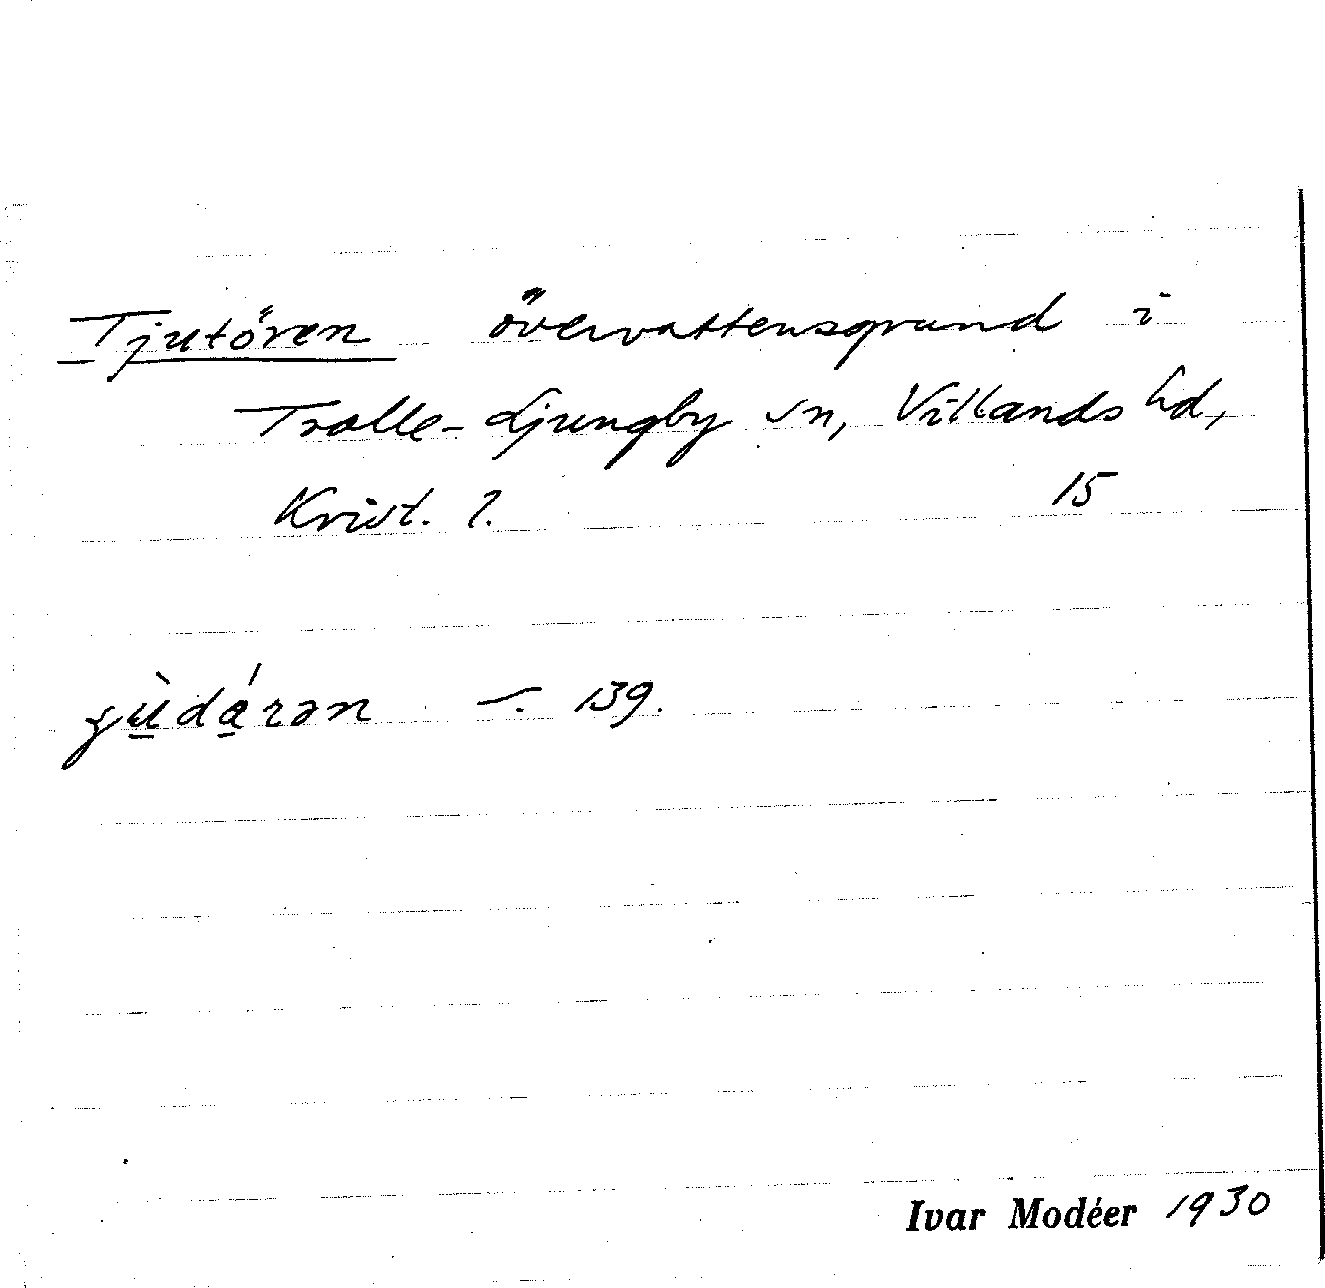 Tjutören övervattensgrund i
Tralle-Ljungby sn, Villands hd,
Krist. l. 15
s. 139.
Ivar Modéer 1930